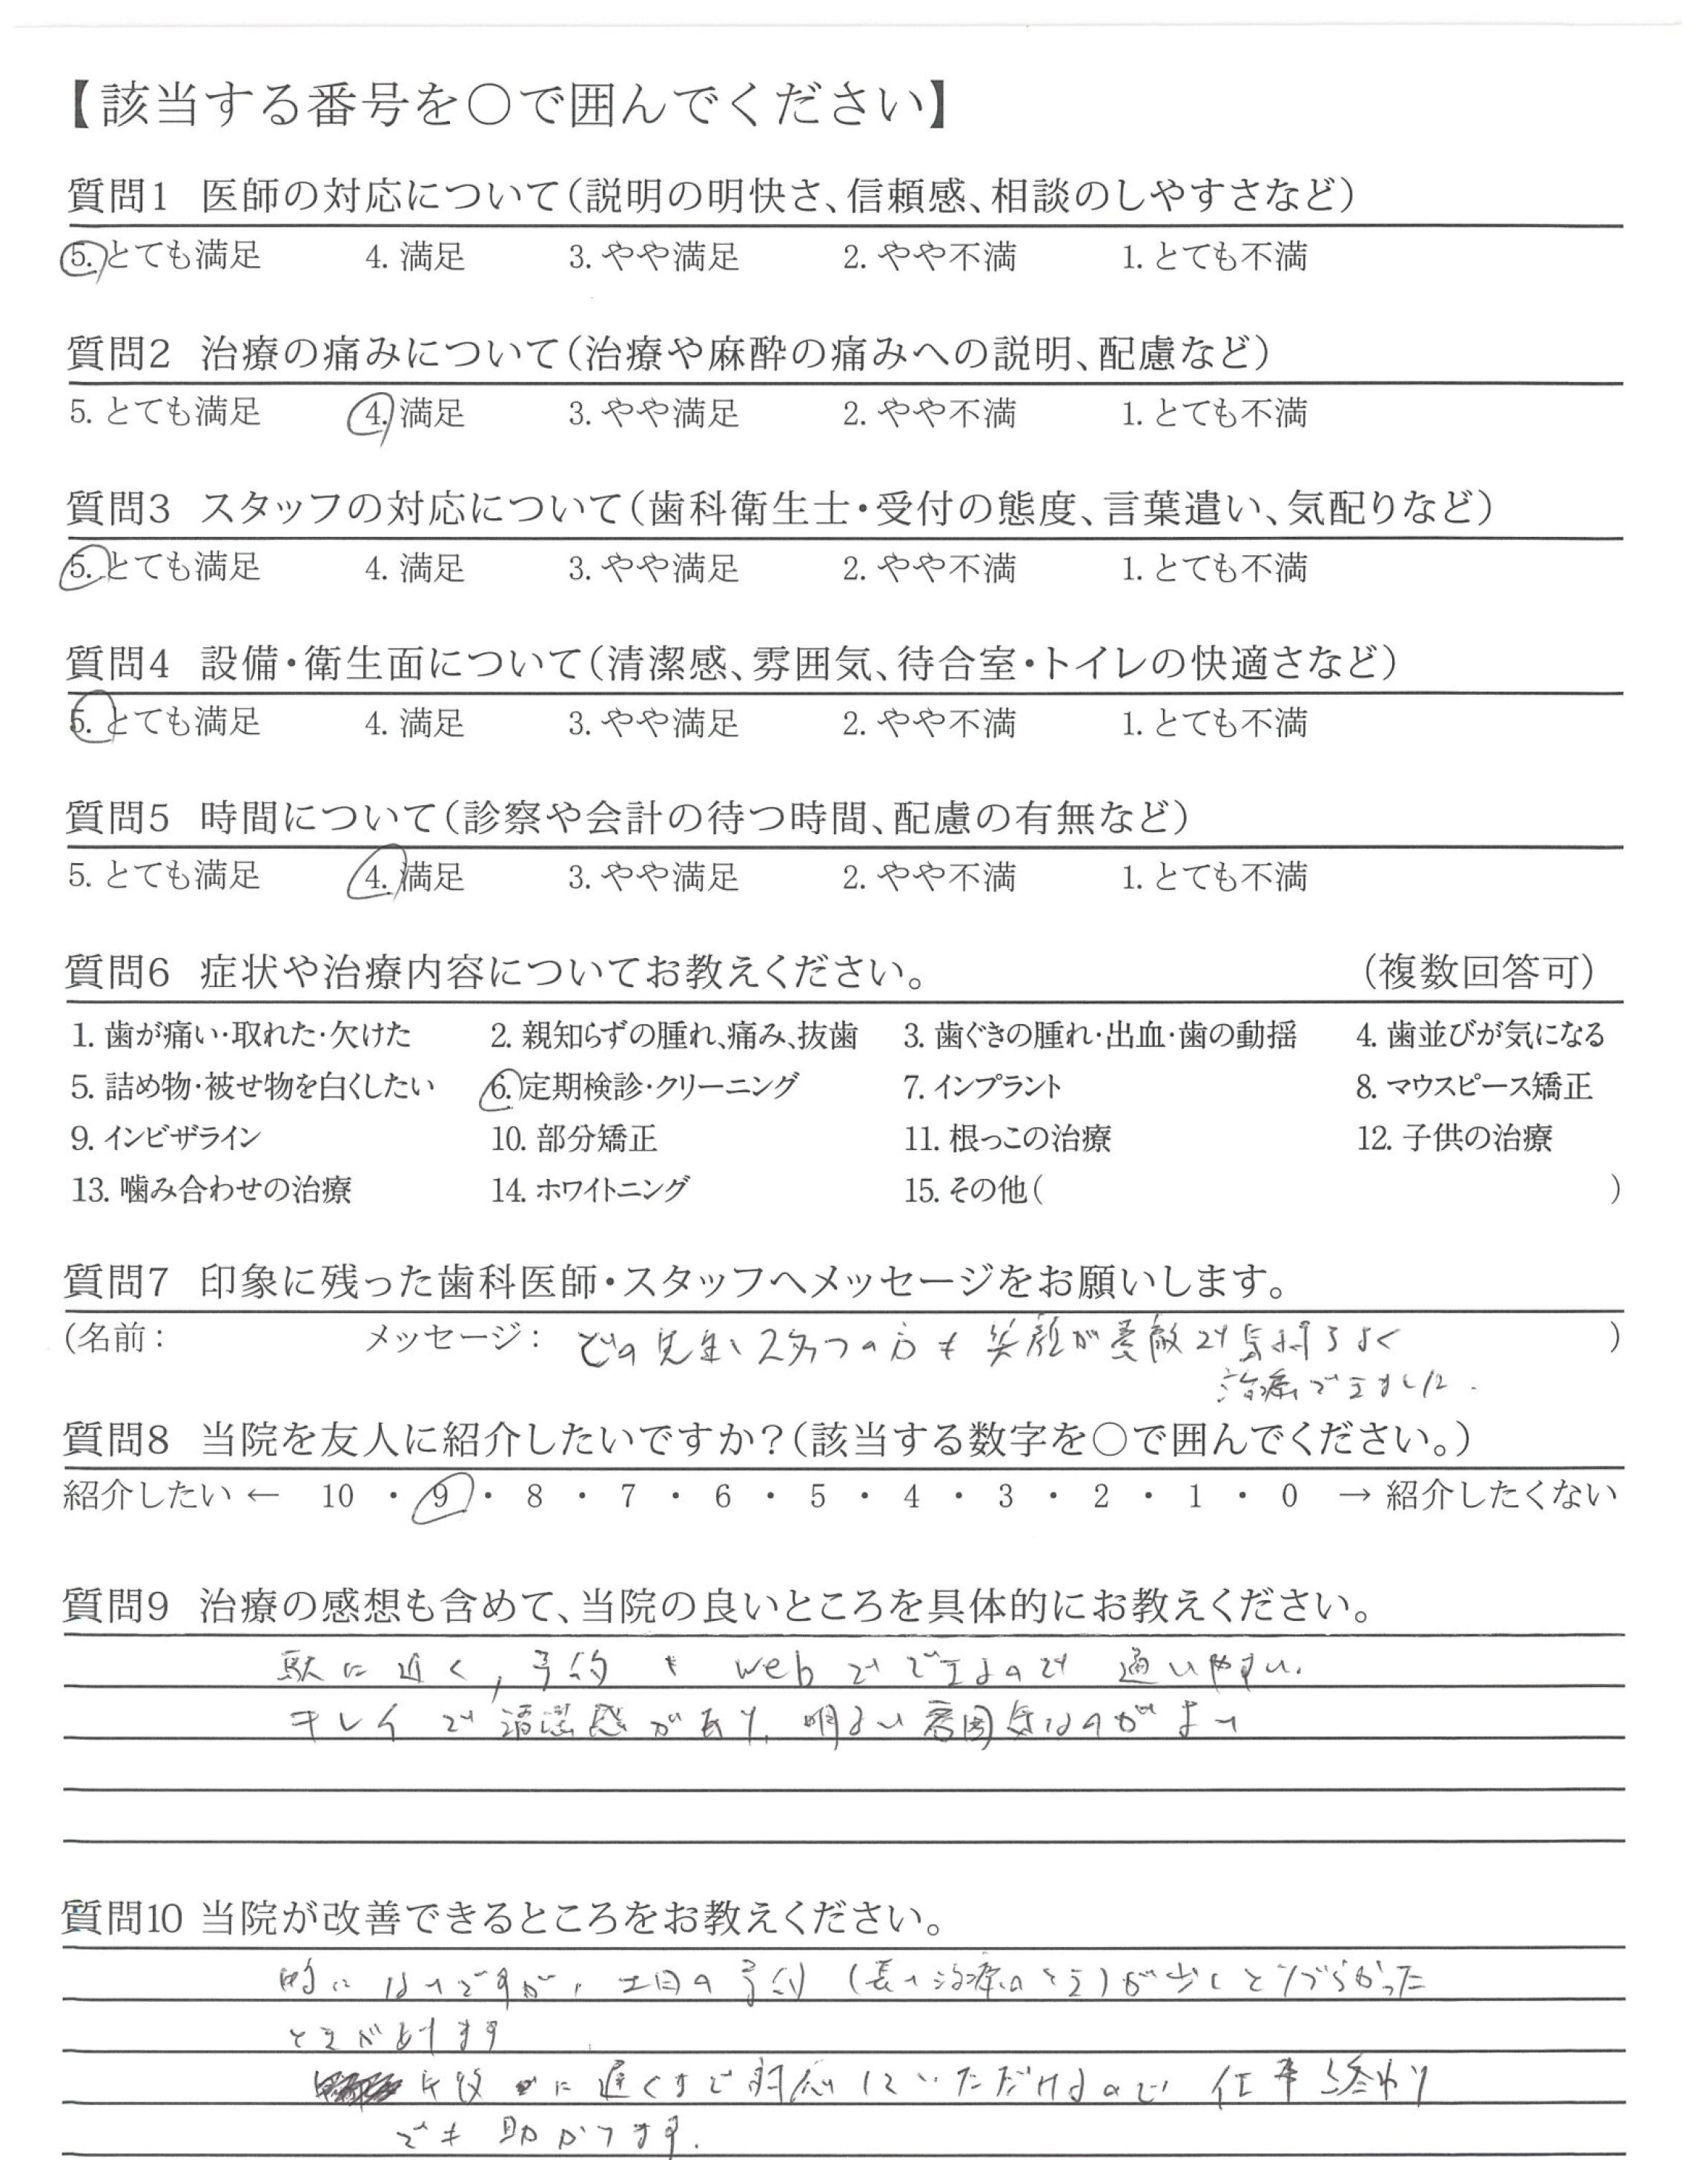 【該当する番号を○で囲んでください】
質問1 医師の対応について(説明の明快さ、信頼感、相談のしやすさなど)
5. とても満足 4. 満足 3. やや満足 2. やや不満 1. とても不満
質問2 治療の痛みについて(治療や麻酔の痛みへの説明、配慮など)
5. とても満足 4. 満足 3. やや満足 2. やや不満 1. とても不満
質問3 スタッフの対応について(歯科衛生士・受付の態度、言葉遣い、気配りなど)
5. とても満足 4. 満足 3. やや満足 2. やや不満 1. とても不満
質問4 設備・衛生面について(清潔感、雰囲気、待合室・トイレの快適さなど)
5. とても満足 4. 満足 3. やや満足 2. やや不満 1. とても不満
質問5 時間について(診察や会計の待つ時間、配慮の有無など)
5. とても満足 4. 満足 3. やや満足 2. やや不満 1. とても不満
質問6 症状や治療内容についてお教えください。 (複数回答可)
1. 歯が痛い・取れた・欠けた 2. 親知らずの腫れ、痛み、抜歯 3. 歯ぐきの腫れ・出血・歯の動揺 4. 歯並びが気になる
5. 詰め物・被せ物を白くしたい 6. 定期検診・クリーニング 7. インプラント 8. マウスピース矯正
9. インビザライン 10. 部分矯正 11. 根っこの治療 12. 子供の治療
13. 噛み合わせの治療 14. ホワイトニング 15. その他( )
質問7 印象に残った歯科医師・スタッフへメッセージをお願いします。
(名前: メッセージ: どの先生、スタッフの方も笑顔が素敵で気持ちよく )
治療できました.
質問8 当院を友人に紹介したいですか?(該当する数字を○で囲んでください。)
紹介したい ← 10 ・ 9 ・ 8 ・ 7 ・ 6 ・ 5 ・ 4 ・ 3 ・ 2 ・ 1 ・ 0 → 紹介したくない
質問9 治療の感想も含めて、当院の良いところを具体的にお教えください。
駅に近く, 予約も webでできるので通いやすい.
キレイで清潔感があり, 明るい雰囲気なのがよい
質問10 当院が改善できるところをお教えください。
特にはないですが, 土日の予約(長い治療のとき)が少しとりづらかった
ときがあります
午後に遅くまで対応していただけるので 仕事終わり
でも助かってます.